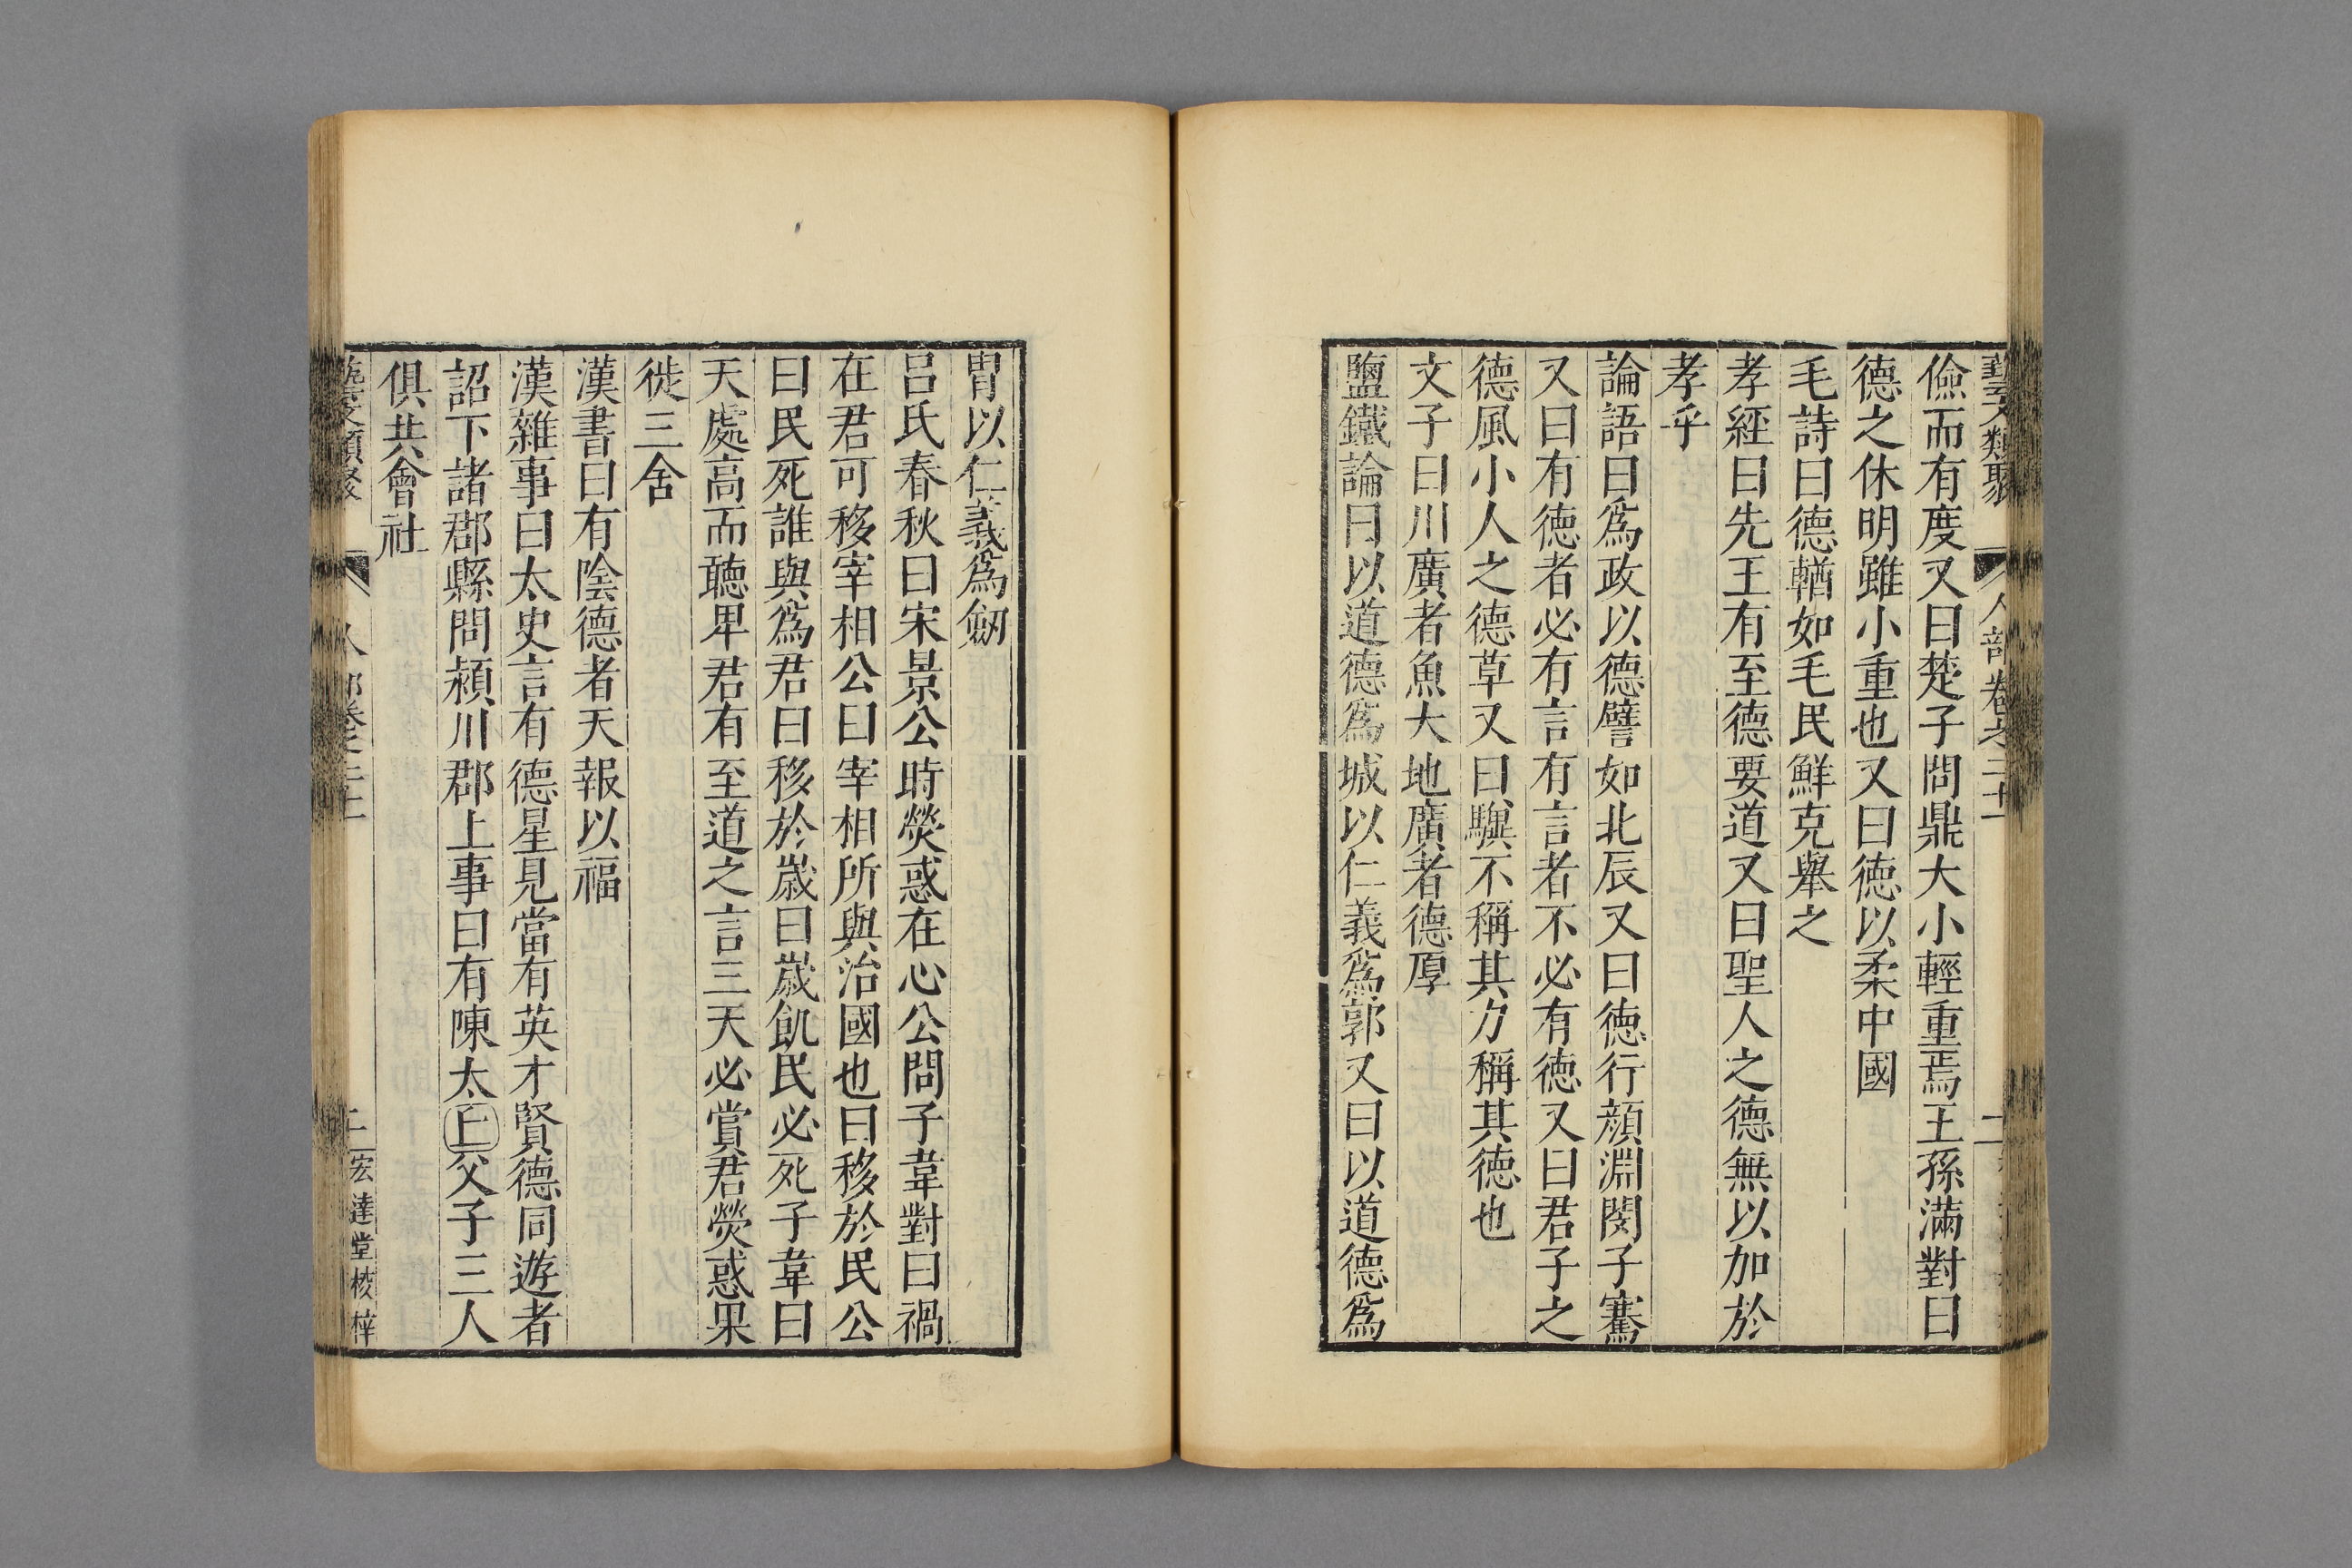 藝文類聚 人部卷之二十一 二
儉而有度又曰楚子問鼎大小輕重焉王孫滿對曰
德之休明雖小重也又曰德以柔中國
毛詩曰德輶如毛民鮮克舉之
孝經曰先王有至德要道又曰聖人之德無以加於
孝乎
論語曰爲政以德譬如北辰又曰德行顏淵閔子騫
又曰有德者必有言有言者不必有德又曰君子之
德風小人之德草又曰驥不稱其力稱其德也
文子曰川廣者魚大地廣者德厚
鹽鐵論曰以道德爲城以仁義爲郭又曰以道德爲
胄以仁義爲劒
呂氏春秋曰宋景公時熒惑在心公問子韋對曰禍
在君可移宰相公曰宰相所與治國也曰移於民公
曰民死誰與爲君曰移於歲曰歲飢民必死子韋曰
天處高而聽卑君有至道之言三天必賞君熒惑果
徙三舍
漢書曰有陰德者天報以福
漢雜事曰太史言有德星見當有英才賢德同遊者
詔下諸郡縣問潁川郡上事曰有陳太丘父子三人
俱共會社
藝文類聚 人部卷之二十一 二 宏達堂校梓